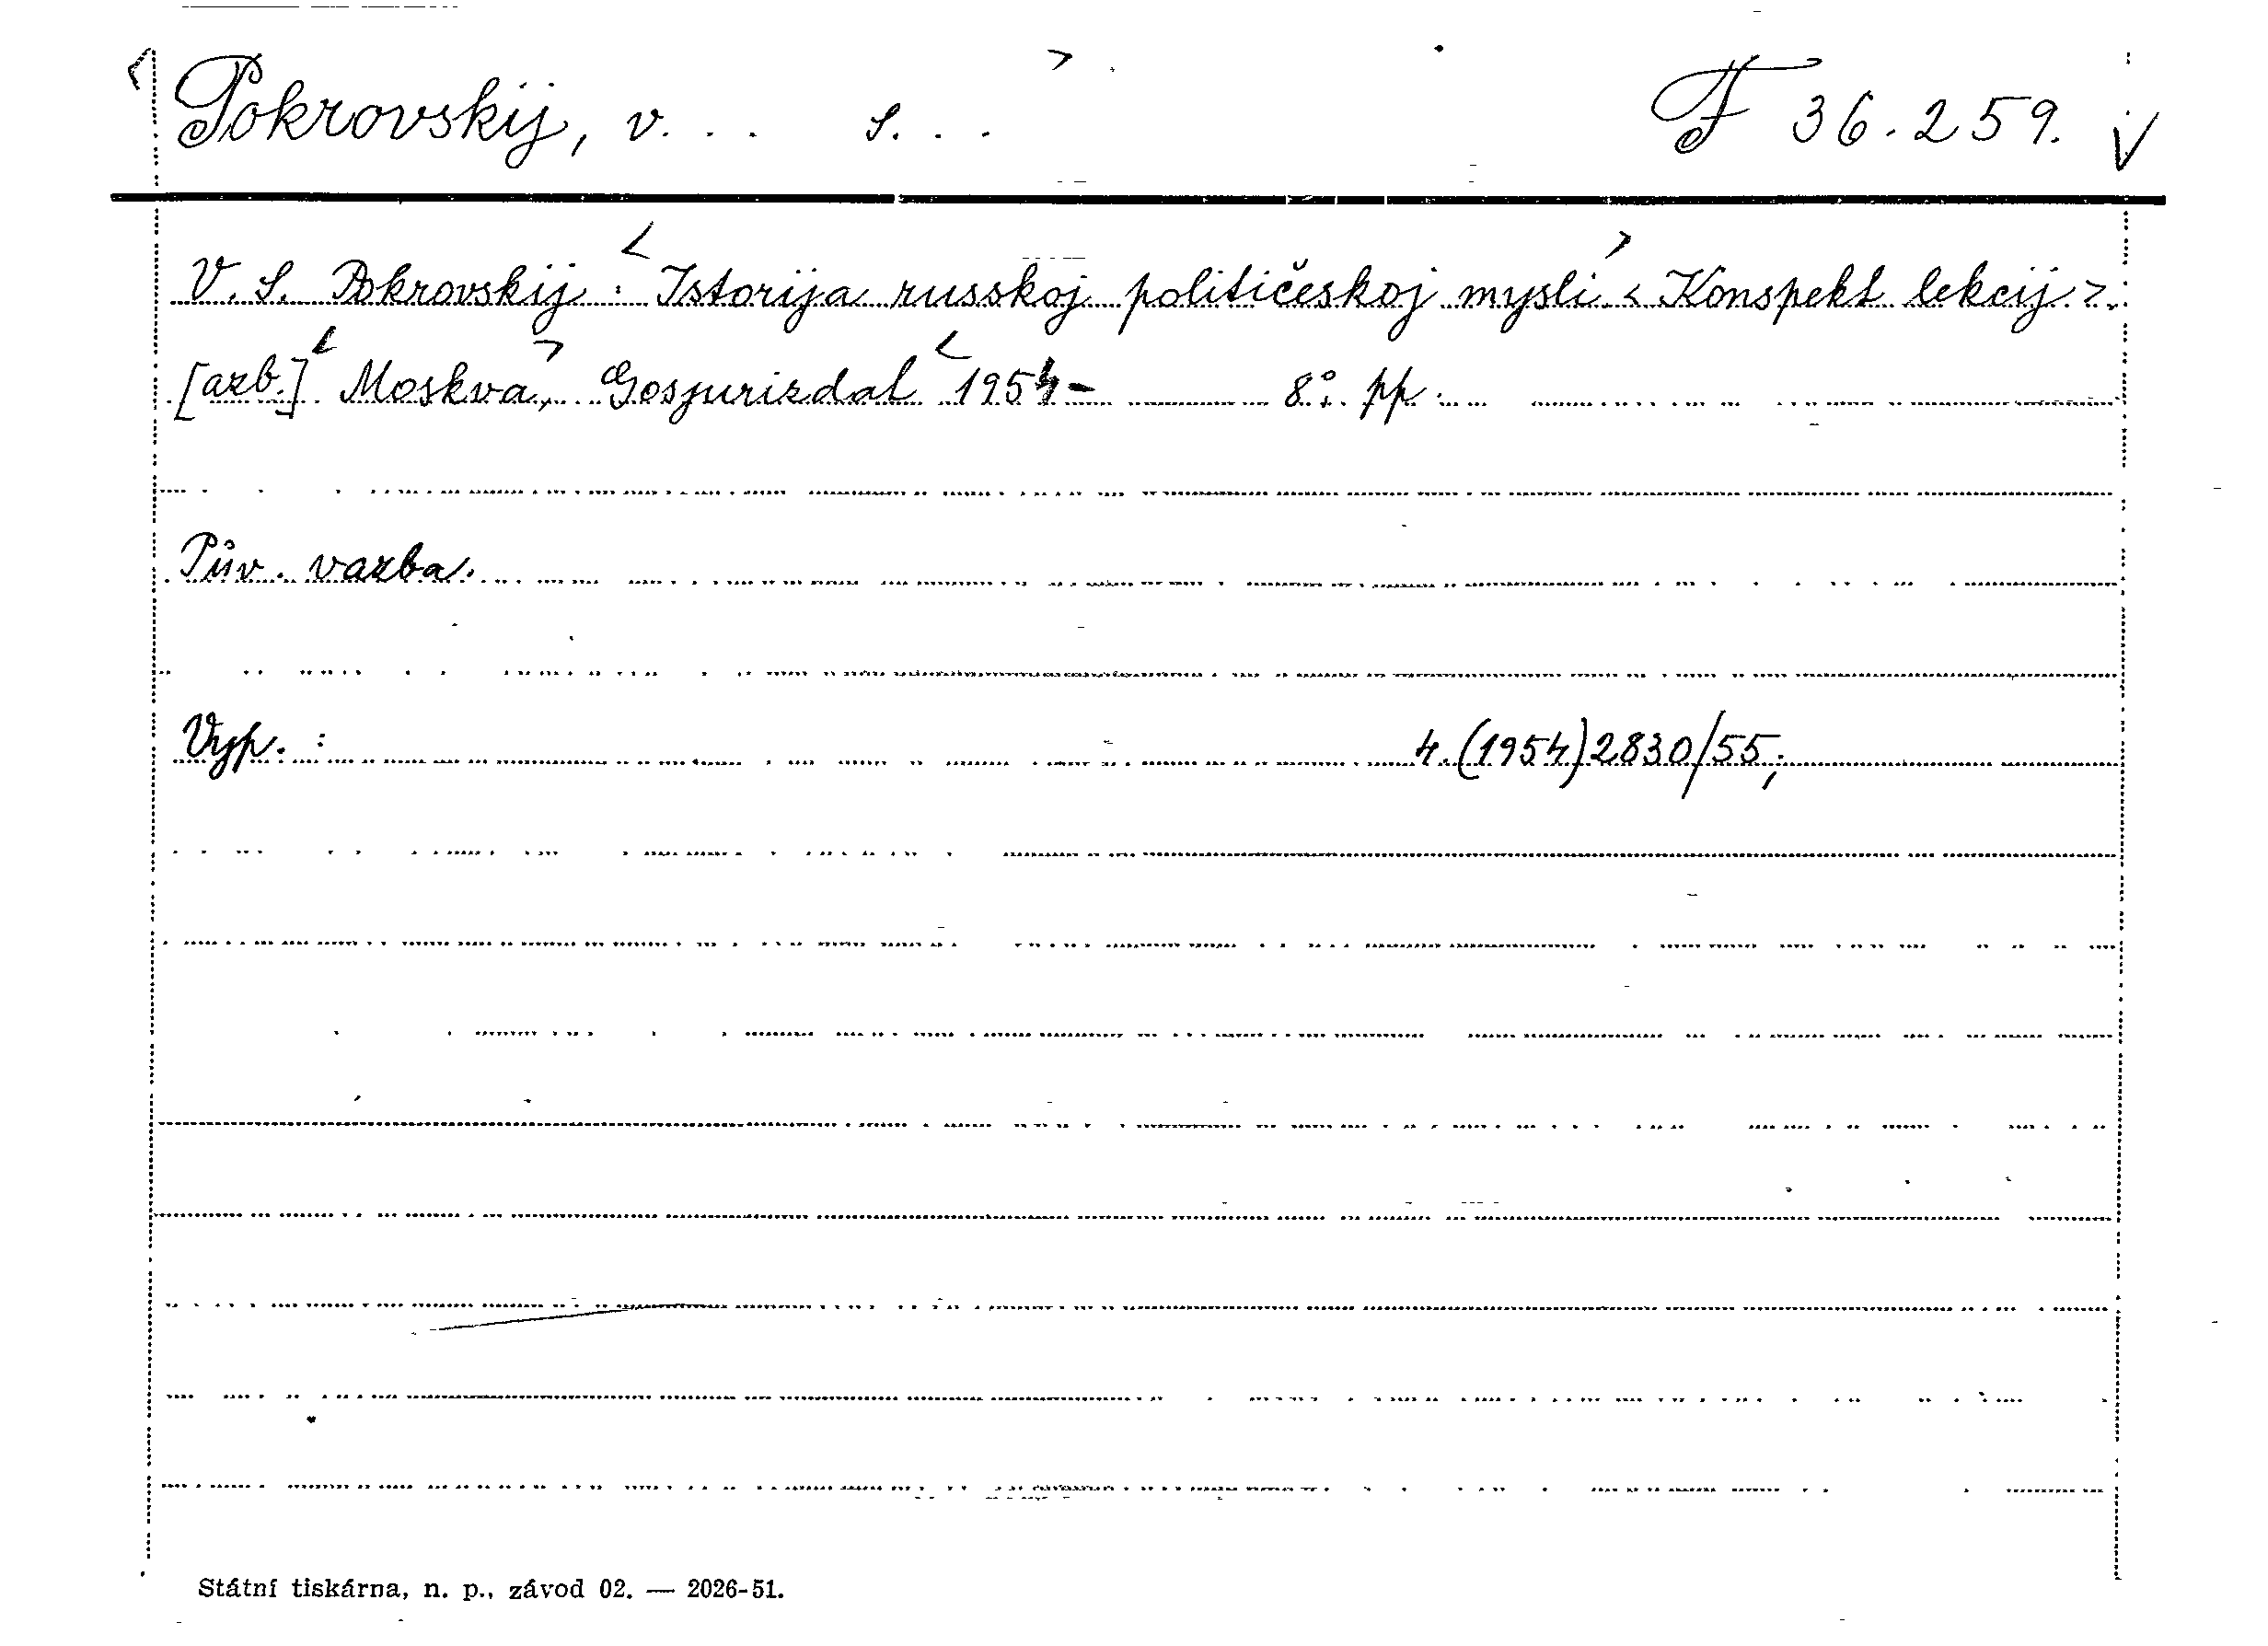 Pokrovskij, V... S... F 36.259.
V. S. Pokrovskij: Istorija russkoj političeskoj mysli. < Konspekt lekcij >.
[azb.] Moskva, Gosjurizdat 1954- 8°. pp.
Pův. vazba.
Vyp. : 4.(1954)2830/55;
Státní tiskárna, n. p., závod 02. — 2026-51.